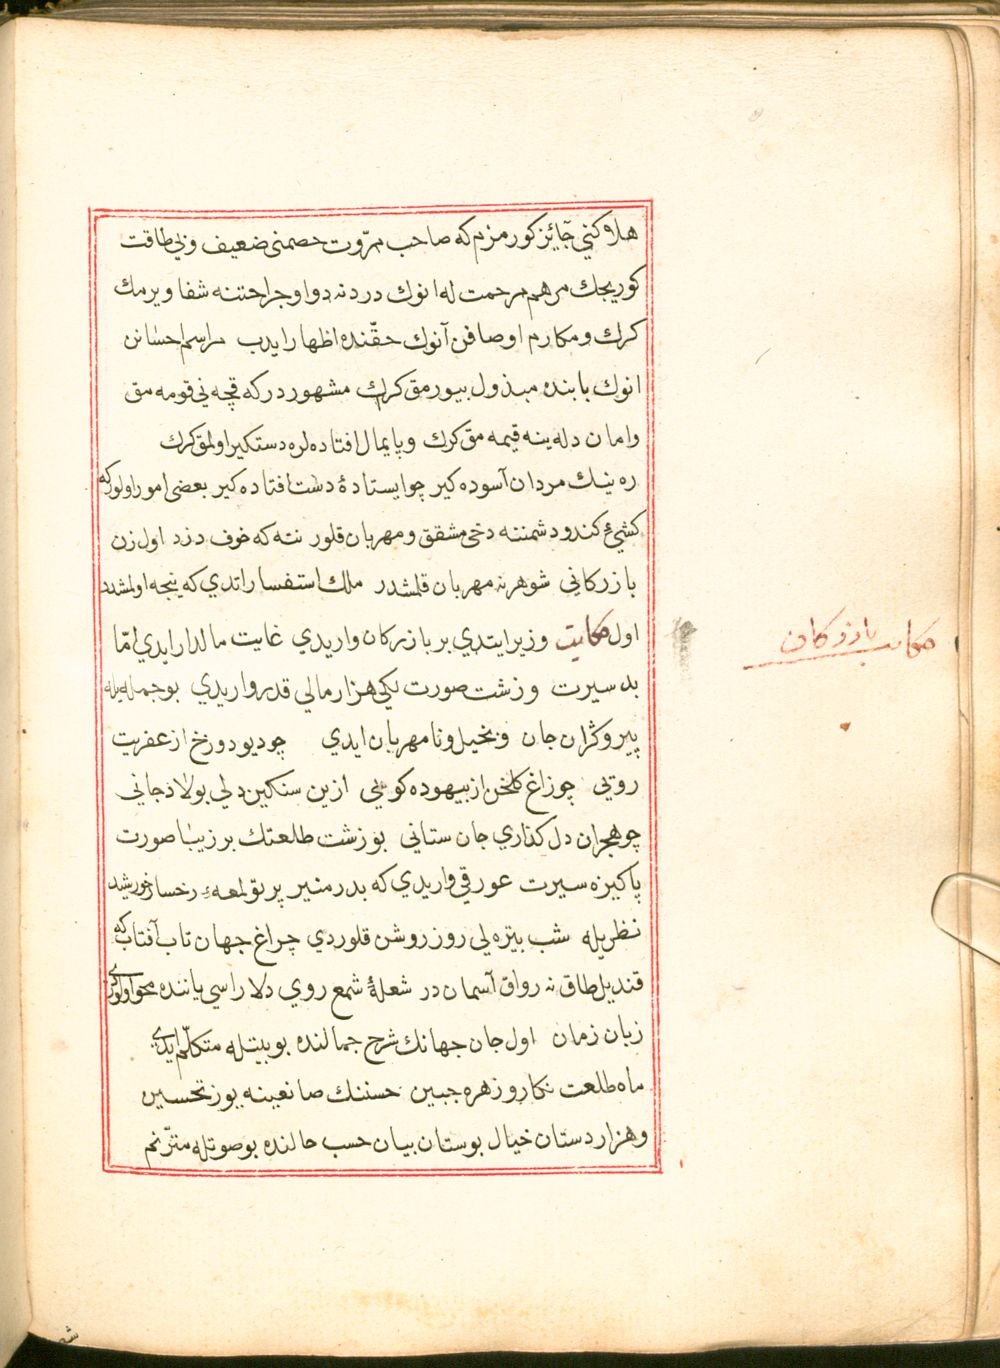 هلاكنی جایز كورمزم كه صاحب مروت خصمنی ضعیف وبی طاقت
كوریجك مرهم مرحمت له انوك دردنه دوا وجراحتنه شفا ویرمك
كرك ومكارم اوصافن آنوك حقنده اظهار ایدب مراسم احسانن
انوك بابنده مبذول بیورمق كرك مشهور در كه قچه نی قومه مق
وامان دله ینه قیمه مق كرك وپایمال افتاده لره دستكیر اولمق كرك
ره نیك مردان آسوده كیر چو ایستادهٔ دست افتاده كیر بعضی امور اولور كه
كشی كندو دشمننه دخی مشفق ومهربان قلور نته كه خوف دزد اول زن
بازركانی شوهرنه مهربان قلمشدر ملك استفسار اتدی كه نیجه اولمشدر
اول حكایت وزیر ایتدی بر بازركان واریدی غایت مالدار ایدی امّا
بد سیرت وزشت صورت لكی هزار مالی قدر واریدی بو جمله یله
پیر وگران جان وبخیل ونامهربان ایدی چو دیو دوزخ از عفریت
رویی چو زاغ كلخن از بیهوده كویی ازین سنكین دلی بولاد جانی
چو هجران دل كذاری جان ستانی بو زشت طلعتك بر زیبا صورت
پاكیزه سیرت عورتی واریدی كه بدر منیر پرتو لمعهٔ رخسار خورشید
نظریله شب تیره لی روز روشن قلوردی چراغ جهان تاب آفتاب كه
قندیل طاق نه رواق آسمان در شعلهٔ شمع روی دلاراسی یاننده محو اولوردی
زبان زمان اول جان جهانك شرح جمالنده بو بیتله متكلّم ایدی
ماه طلعت نكار وزهره جبین حسننك صانعینه یوز تحسین
وهزار دستان خیال بوستان بیان حسب حالنده بو صوتله مترنّم
حكایت بازركان